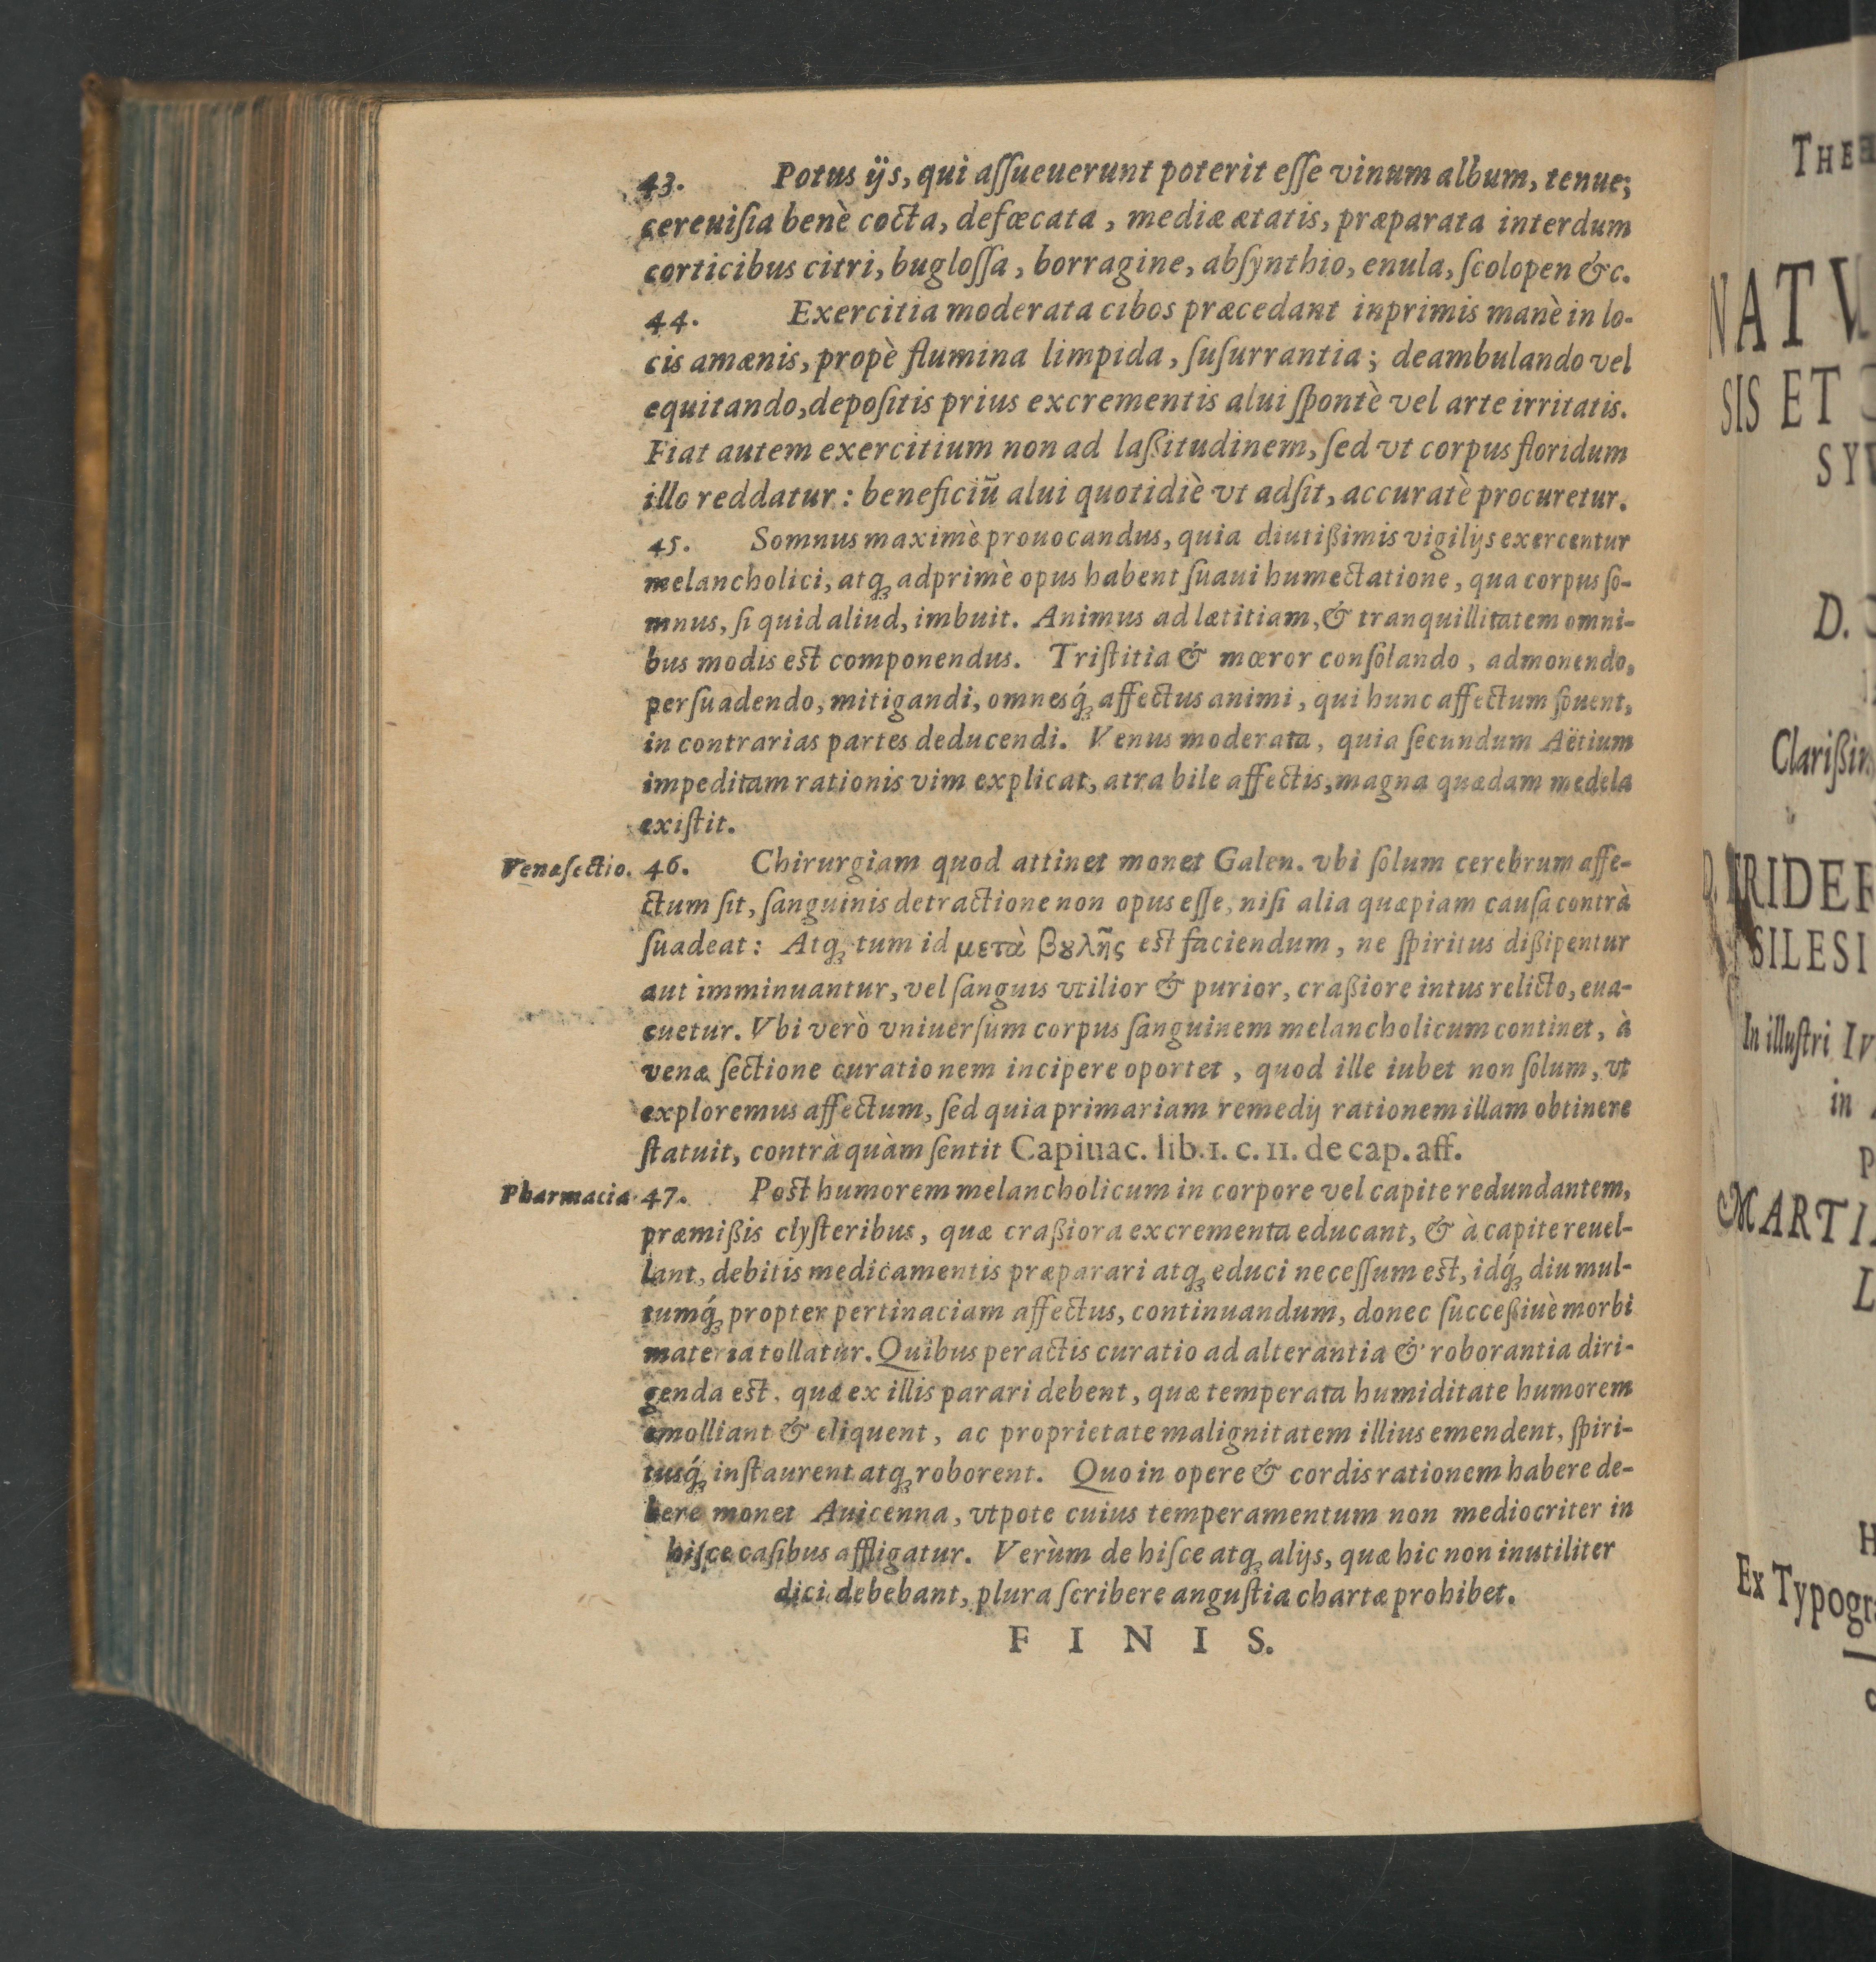 43. Potus ijs, qui aſſueuerunt poterit eſſe vinum album, tenue;
cereuiſia benè cocta, defœcata, mediæ ætatis, præparata interdum
corticibus citri, bugloſſa, borragine, abſynthio, enula, ſcolopen &c.
44. Exercitia moderata cibos præcedant inprimis manè in lo-
cis amænis, propè flumina limpida, ſuſurrantia; deambulando vel
equitando, depoſitis prius excrementis alui ſpontè vel arte irritatis.
Fiat autem exercitium non ad laßitudinem, ſed vt corpus floridum
illo reddatur: beneficiũ alui quotidiè vt adſit, accuratè procuretur.
45. Somnus maximè prouocandus, quia diutißimis vigilijs exercentur
melancholici, atq́ꝫ adprimè opus habent ſuaui humectatione, qua corpus ſo-
mnus, ſi quid aliud, imbuit. Animus ad lætitiam, & tranquillitatem omni-
bus modis est componendus. Triſtitia & mœror conſolando, admonendo,
perſuadendo, mitigandi, omnesq́ꝫ affectus animi, qui hunc affectum fouent,
in contrarias partes deducendi. Venus moderata, quia ſecundum Aëtium
impeditam rationis vim explicat, atra bile affectis, magna quædam medela
exiſtit.
Venæſectio. 46. Chirurgiam quod attinet monet Galen. vbi ſolum cerebrum affe-
ctum ſit, ſanguinis detractione non opus eſſe, niſi alia quæpiam cauſa contrà
ſuadeat: Atqꝫ tum id μετὰ βȣλῆς est faciendum, ne ſpiritus dißipentur
aut imminuantur, vel ſanguis vtilior & purior, craßiore intus relicto, eua-
cuetur. Vbi verò vniuerſum corpus ſanguinem melancholicum continet, à
venæ ſectione curationem incipere oportet, quod ille iubet non ſolum, vt
exploremus affectum, ſed quia primariam remedij rationem illam obtinere
ſtatuit, contrà quàm ſentit Capiuac. lib. 1. c. 11. de cap. aff.
Pharmacia 47. Post humorem melancholicum in corpore vel capite redundantem,
præmißis clyſteribus, quæ craßiora excrementa educant, & à capite reuel-
lant, debitis medicamentis præparari atqꝫ educi neceſſum est, idq́ꝫ diu mul-
tumq́ꝫ propter pertinaciam affectus, continuandum, donec ſucceßiuè morbi
materia tollatur. Quibus peractis curatio ad alterantia & roborantia diri-
genda est, quæ ex illis parari debent, quæ temperata humiditate humorem
emolliant & eliquent, ac proprietate malignitatem illius emendent, ſpiri-
tusq́ꝫ inſtaurent atqꝫ roborent. Quo in opere & cordis rationem habere de-
bere monet Auicenna, vtpote cuius temperamentum non mediocriter in
hiſce caſibus affligatur. Verùm de hiſce atqꝫ alijs, quæ hic non inutiliter
dici debebant, plura ſcribere anguſtia chartæ prohibet.
FINIS.
NATV
SIS ET
D.
SILESI
In illuſtri
in
MARTI
L
Ex Typogr